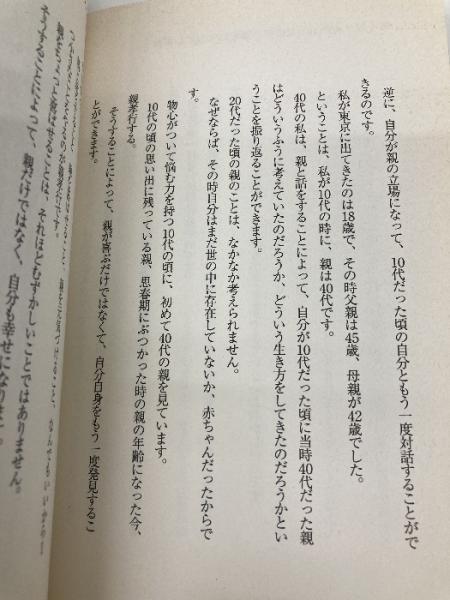 逆に、自分が親の立場になって、10代だった頃の自分ともう一度対話することがで
きるのです。
私が東京に出てきたのは18歳で、その時父親は45歳、母親が42歳でした。
ということは、私が10代の時に、親は40代です。
40代の私は、親と話をすることによって、自分が10代だった頃に当時40代だった親
はどういうふうに考えていたのだろうか、どういう生き方をしてきたのだろうかとい
うことを振り返ることができます。
20代だった頃の親のことは、なかなか考えられません。
なぜならば、その時自分はまだ世の中に存在していないか、赤ちゃんだったからで
す。
物心がついて悩む力を持つ10代の頃に、初めて40代の親を見ています。
10代の頃の思い出に残っている親、思春期にぶつかった時の親の年齢になった今、
親孝行する。
そうすることによって、親が喜ぶだけではなくて、自分自身をもう一度発見するこ
とができます。
喜ばせることは、それほどむずかしいことではありません。
そうすることによって、親だけではなく、自分も幸せになります。